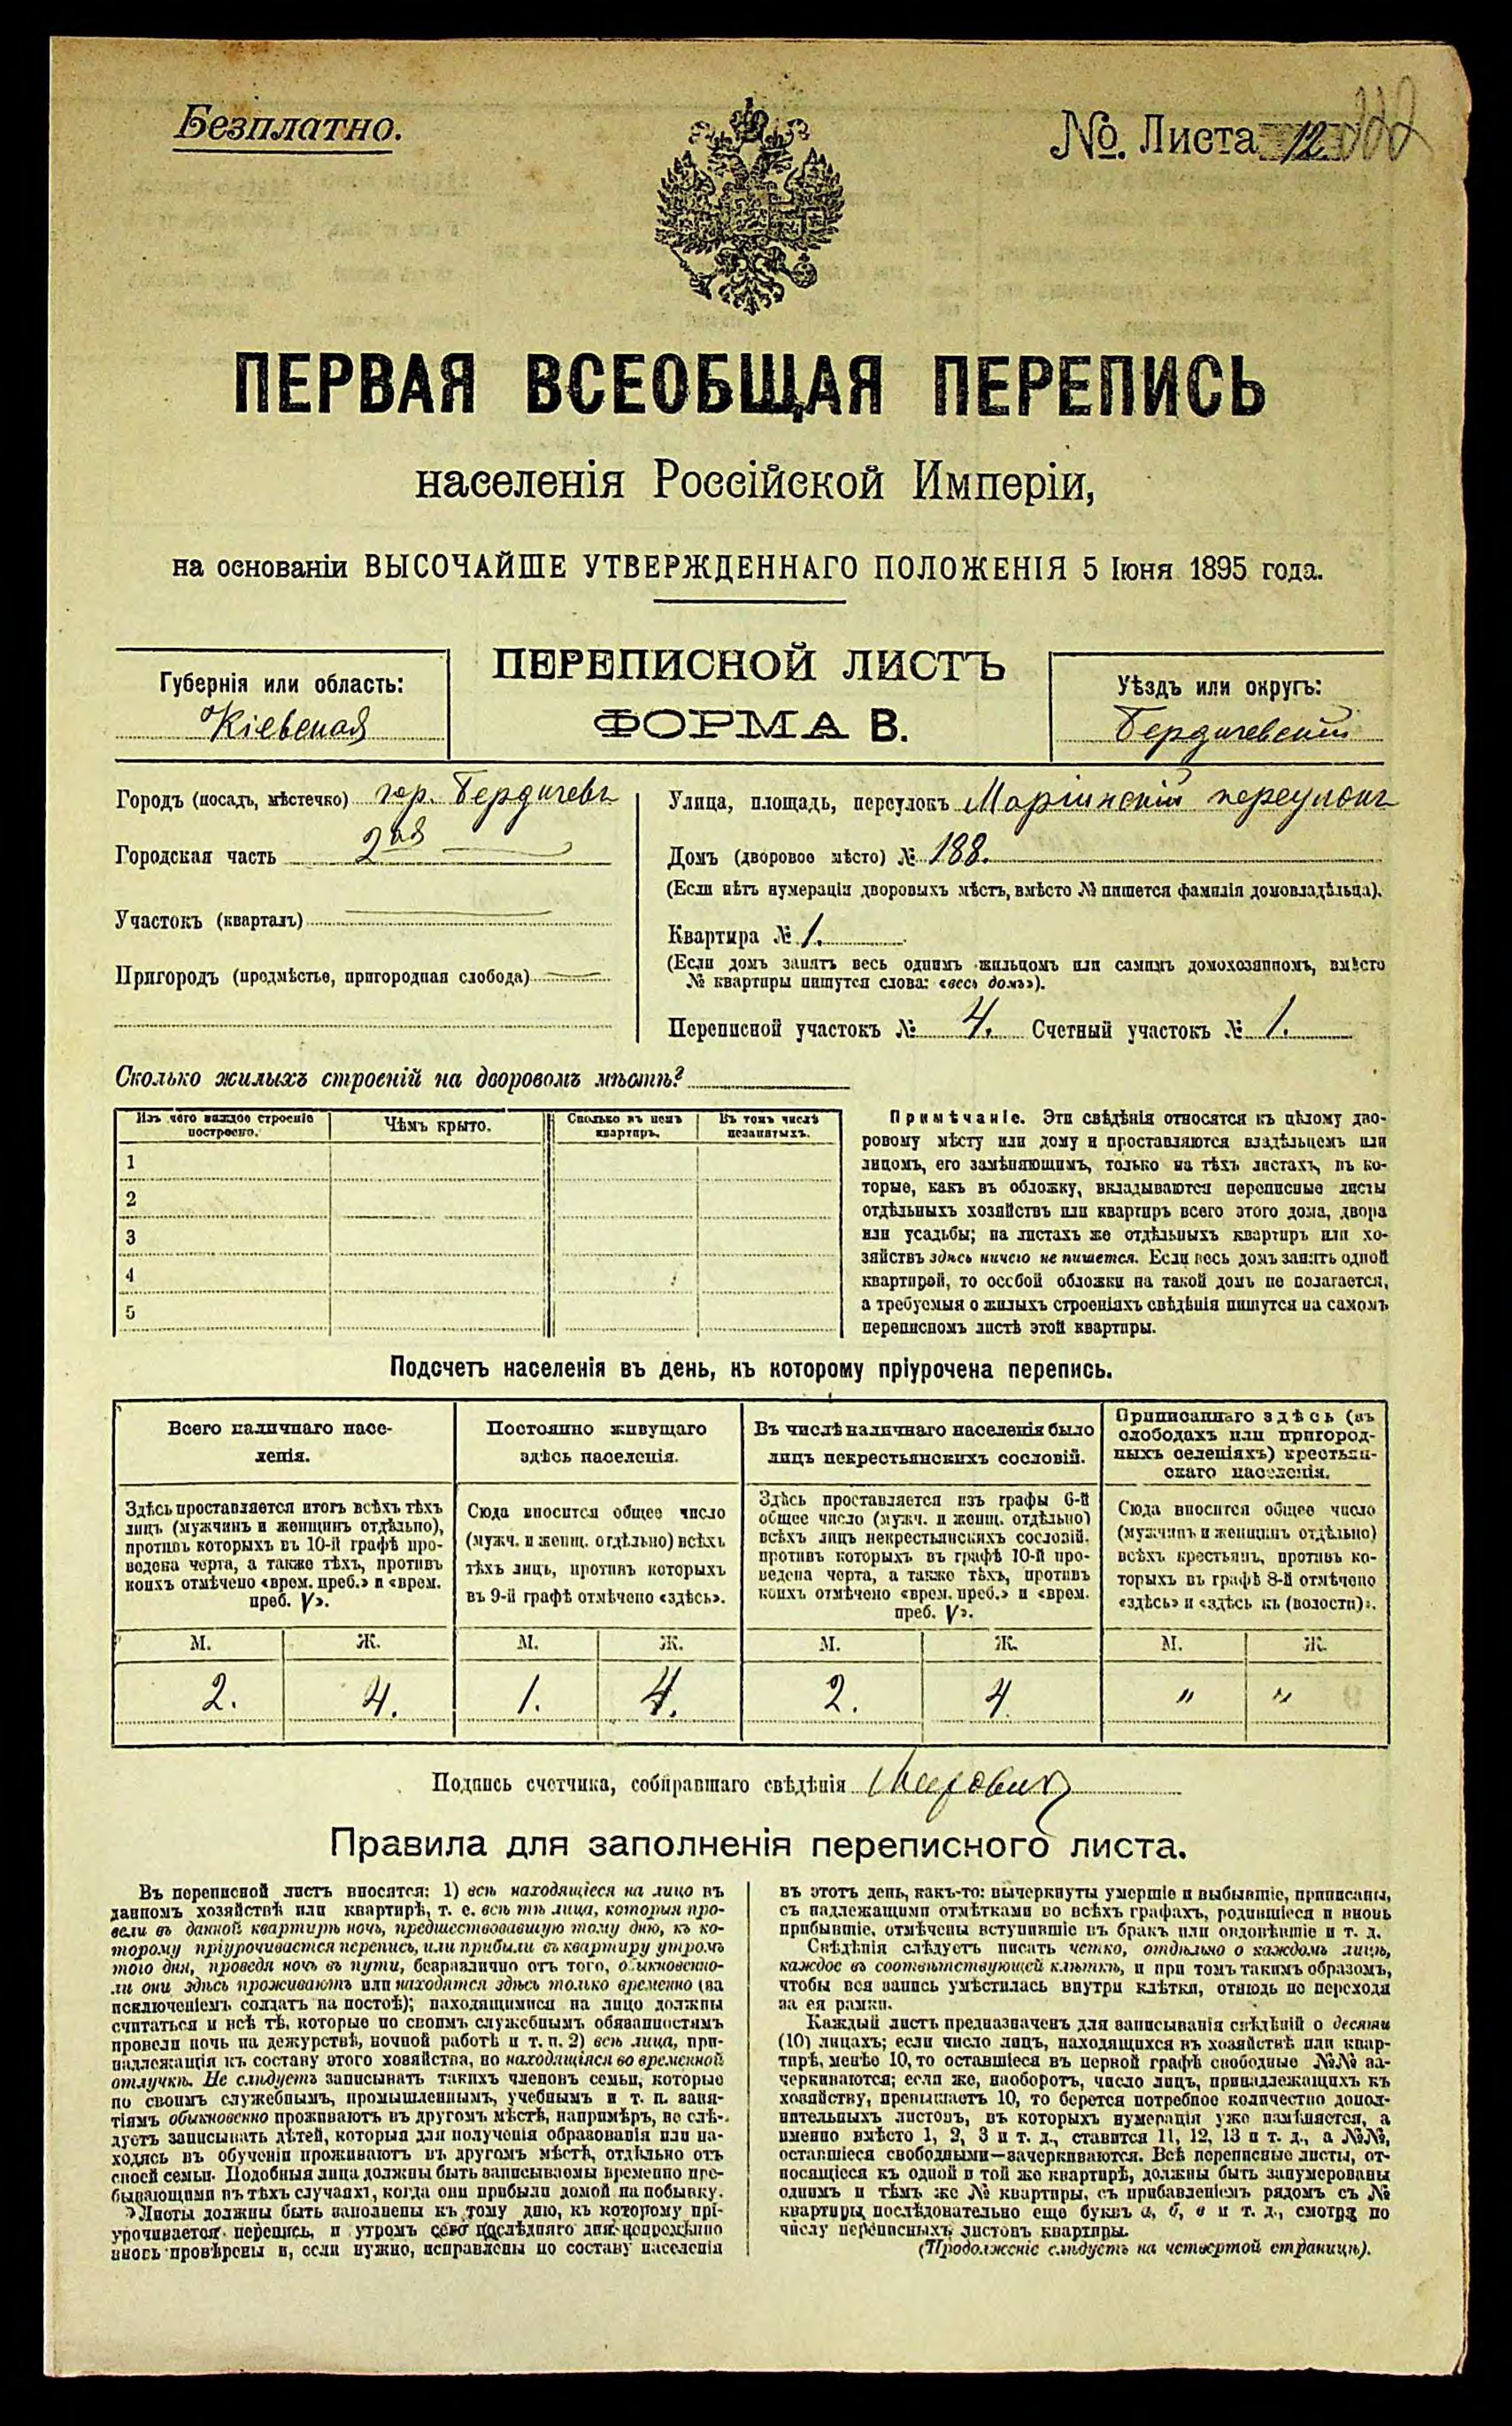 Безплатно.
№. Листа 12
ПЕРВАЯ ВСЕОБЩАЯ ПЕРЕПИСЬ
населенія Россійской Имперіи,
на основаніи ВЫСОЧАЙШЕ УТВЕРЖДЕННАГО ПОЛОЖЕНІЯ 5 Іюня 1895 года.
ПЕРЕПИСНОЙ ЛИСТЪ
ФОРМА В.
Губернія или область:
Кіевская
Уѣздъ или округъ:
Бердичевскій
Городъ (посадъ, мѣстечко) гор. Бердичевъ
Городская часть 2ая
Участокъ (кварталъ)
Пригородъ (предмѣстье, пригородная слобода)
Улица, площадь, переулокъ Маріинскій переулокъ
Домъ (дворовое мѣсто) № 188.
(Если нѣтъ нумераціи дворовыхъ мѣстъ, вмѣсто № пишется фамилія домовладѣльца).
Квартира № 1.
(Если домъ занятъ весь однимъ жильцомъ или самимъ домохозяиномъ, вмѣсто
№ квартиры пишутся слова: «весь домъ»).
Переписной участокъ № 4. Счетный участокъ № 1.
Сколько жилыхъ строеній на дворовомъ мѣстѣ?
Изъ чего каждое строеніе построено.
Чѣмъ крыто.
Сколько въ немъ квартиръ.
Въ томъ числѣ незанятыхъ.
1
2
3
4
5
Примѣчаніе. Эти свѣдѣнія относятся къ цѣлому дво-
ровому мѣсту или дому и проставляются владѣльцемъ или
лицомъ, его замѣняющимъ, только на тѣхъ листахъ, въ ко-
торые, какъ въ обложку, вкладываются переписные листы
отдѣльныхъ хозяйствъ или квартиръ всего этого дома, двора
или усадьбы; на листахъ же отдѣльныхъ квартиръ или хо-
зяйствъ здѣсь ничего не пишется. Если весь домъ занятъ одной
квартирой, то особой обложки на такой домъ не полагается,
а требуемыя о жилыхъ строеніяхъ свѣдѣнія пишутся на самомъ
переписномъ листѣ этой квартиры.
Подсчетъ населенія въ день, къ которому пріурочена перепись.
Всего наличнаго насе-
ленія.
Здѣсь проставляется итогъ всѣхъ тѣхъ
лицъ (мужчинъ и женщинъ отдѣльно),
противъ которыхъ въ 10-й графѣ про-
ведена черта, а также тѣхъ, противъ
коихъ отмѣчено «врем. преб.» и «врем.
преб. V».
Постоянно живущаго
здѣсь населенія.
Сюда вносится общее число
(мужч. и женщ. отдѣльно) всѣхъ
тѣхъ лицъ, противъ которыхъ
въ 9-й графѣ отмѣчено «здѣсь».
Въ числѣ наличнаго населенія было
лицъ некрестьянскихъ сословій.
Здѣсь проставляется изъ графы 6-й
общее число (мужч. и женщ. отдѣльно)
всѣхъ лицъ некрестьянскихъ сословій,
противъ которыхъ въ графѣ 10-й про-
ведена черта, а также тѣхъ, противъ
коихъ отмѣчено «врем. преб.» и «врем.
преб. V».
Приписаннаго здѣсь (въ
слободахъ или пригород-
ныхъ селеніяхъ) крестьян-
скаго населенія.
Сюда вносится общее число
(мужчинъ и женщинъ отдѣльно)
всѣхъ крестьянъ, противъ ко-
торыхъ въ графѣ 8-й отмѣчено
«здѣсь» и «здѣсь къ (волости)».
М. Ж. М. Ж. М. Ж. М. Ж.
2. 4. 1. 4. 2. 4 " "
Подпись счетчика, собиравшаго свѣдѣнія
Правила для заполненія переписного листа.
Въ переписной листъ вносятся: 1) всѣ находящіеся на лицо въ
данномъ хозяйствѣ или квартирѣ, т. е. всѣ тѣ лица, которыя про-
вели въ данной квартирѣ ночь, предшествовавшую тому дню, къ ко-
торому пріурочивается перепись, или прибыли въ квартиру утромъ
того дня, проведя ночь въ пути, безразлично отъ того, обыкновенно-
ли они здѣсь проживаютъ или находятся здѣсь только временно (за
исключеніемъ солдатъ на постоѣ); находящимися на лицо должны
считаться и всѣ тѣ, которые по своимъ служебнымъ обязанностямъ
провели ночь на дежурствѣ, ночной работѣ и т. п. 2) всѣ лица, при-
надлежащія къ составу этого хозяйства, но находящіяся во временной
отлучкѣ. Не слѣдуетъ записывать такихъ членовъ семьи, которые
по своимъ служебнымъ, промышленнымъ, учебнымъ и т. п. заня-
тіямъ обыкновенно проживаютъ въ другомъ мѣстѣ, напримѣръ, не слѣ-
дуетъ записывать дѣтей, которыя для полученія образованія или на-
ходясь въ обученіи проживаютъ въ другомъ мѣстѣ, отдѣльно отъ
своей семьи. Подобныя лица должны быть записываемы временно пре-
бывающими въ тѣхъ случаяхъ, когда они прибыли домой на побывку.
Листы должны быть заполнены къ тому дню, къ которому прі-
урочивается перепись, и утромъ сего послѣдняго дня непремѣнно
вновь провѣрены и, если нужно, исправлены по составу населенія
въ этотъ день, какъ-то: вычеркнуты умершіе и выбывшіе, приписаны,
съ надлежащими отмѣтками во всѣхъ графахъ, родившіеся и вновь
прибывшіе, отмѣчены вступившіе въ бракъ или овдовѣвшіе и т. д.
Свѣдѣнія слѣдуетъ писать четко, отдѣльно о каждомъ лицѣ,
каждое въ соотвѣтствующей клѣткѣ, и при томъ такимъ образомъ,
чтобы вся запись умѣстилась внутри клѣтки, отнюдь не переходя
за ея рамки.
Каждый листъ предназначенъ для записыванія свѣдѣній о десяти
(10) лицахъ; если число лицъ, находящихся въ хозяйствѣ или квар-
тирѣ, менѣе 10, то оставшіеся въ первой графѣ свободные №№ за-
черкиваются; если же, наоборотъ, число лицъ, принадлежащихъ къ
хозяйству, превышаетъ 10, то берется потребное количество допол-
нительныхъ листовъ, въ которыхъ нумерація уже измѣняется, а
именно вмѣсто 1, 2, 3 и т. д., ставится 11, 12, 13 и т. д., а №№,
оставшіеся свободными—зачеркиваются. Всѣ переписные листы, от-
носящіеся къ одной и той же квартирѣ, должны быть занумерованы
однимъ и тѣмъ же № квартиры, съ прибавленіемъ рядомъ съ №
квартиры послѣдовательно еще буквъ а, б, в и т. д., смотря по
числу переписныхъ листовъ квартиры.
(Продолженіе слѣдуетъ на четвертой страницѣ).